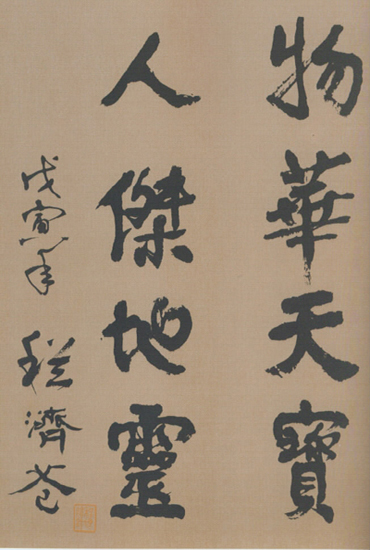 物華天寶
人傑地靈
戊寅年 程濟蒼